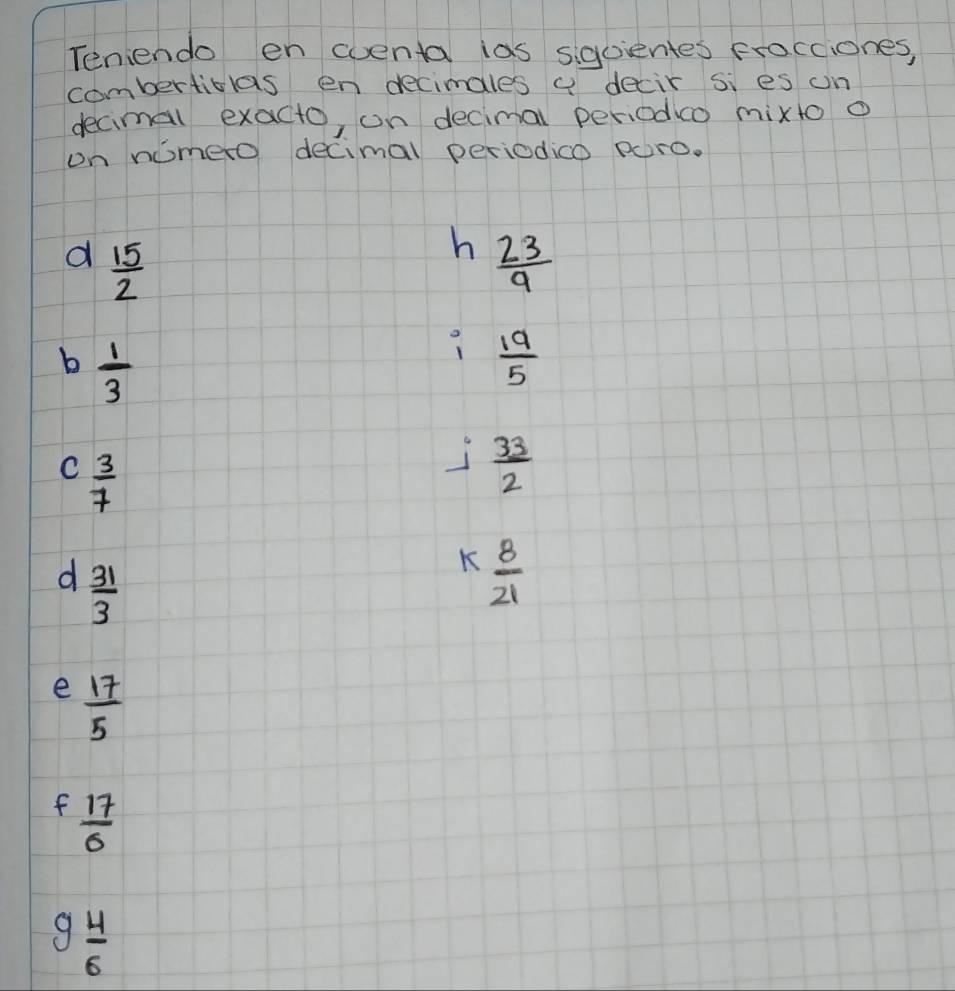 Teniendo en cuenta las siguientes fracciones,
combertirlas en decimales y decir si es un
decimal exacto, un decimal periodico mixto o
un número decimal periodico puro.
a 15/2
b 1/3
c 3/7
d 31/3
e 17/5
f 17/6
g 4/6
h 23/9
i 19/5
j 33/2
k 8/21